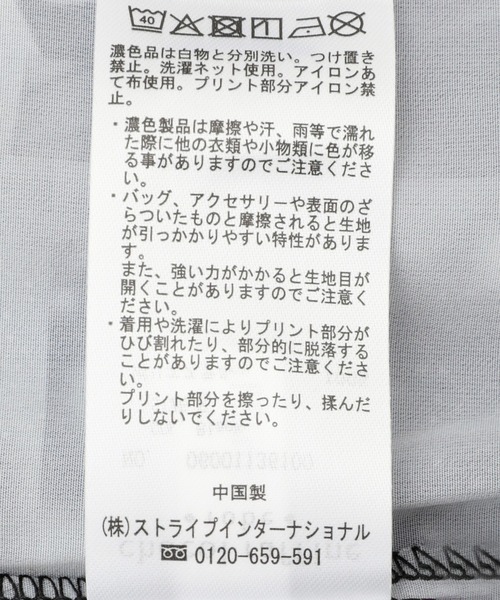 40
濃色品は白物と分別洗い。つけ置き
禁止。洗濯ネット使用。アイロンあ
て布使用。プリント部分アイロン禁
止。
・濃色製品は摩擦や汗、雨等で濡れ
た際に他の衣類や小物類に色が移
る事がありますのでご注意くださ
い。
・バッグ、アクセサリーや表面のざ
らついたものと摩擦されると生地
が引っかかりやすい特性がありま
す。
また、強い力がかかると生地目が
開くことがありますのでご注意く
ださい。
・着用や洗濯によりプリント部分が
ひび割れたり、部分的に脱落する
ことがありますのでご注意くださ
い。
プリント部分を擦ったり、揉んだ
りしないでください。
NO. 06001136100
中国製
(株)ストライプインターナショナル
0120-659-591